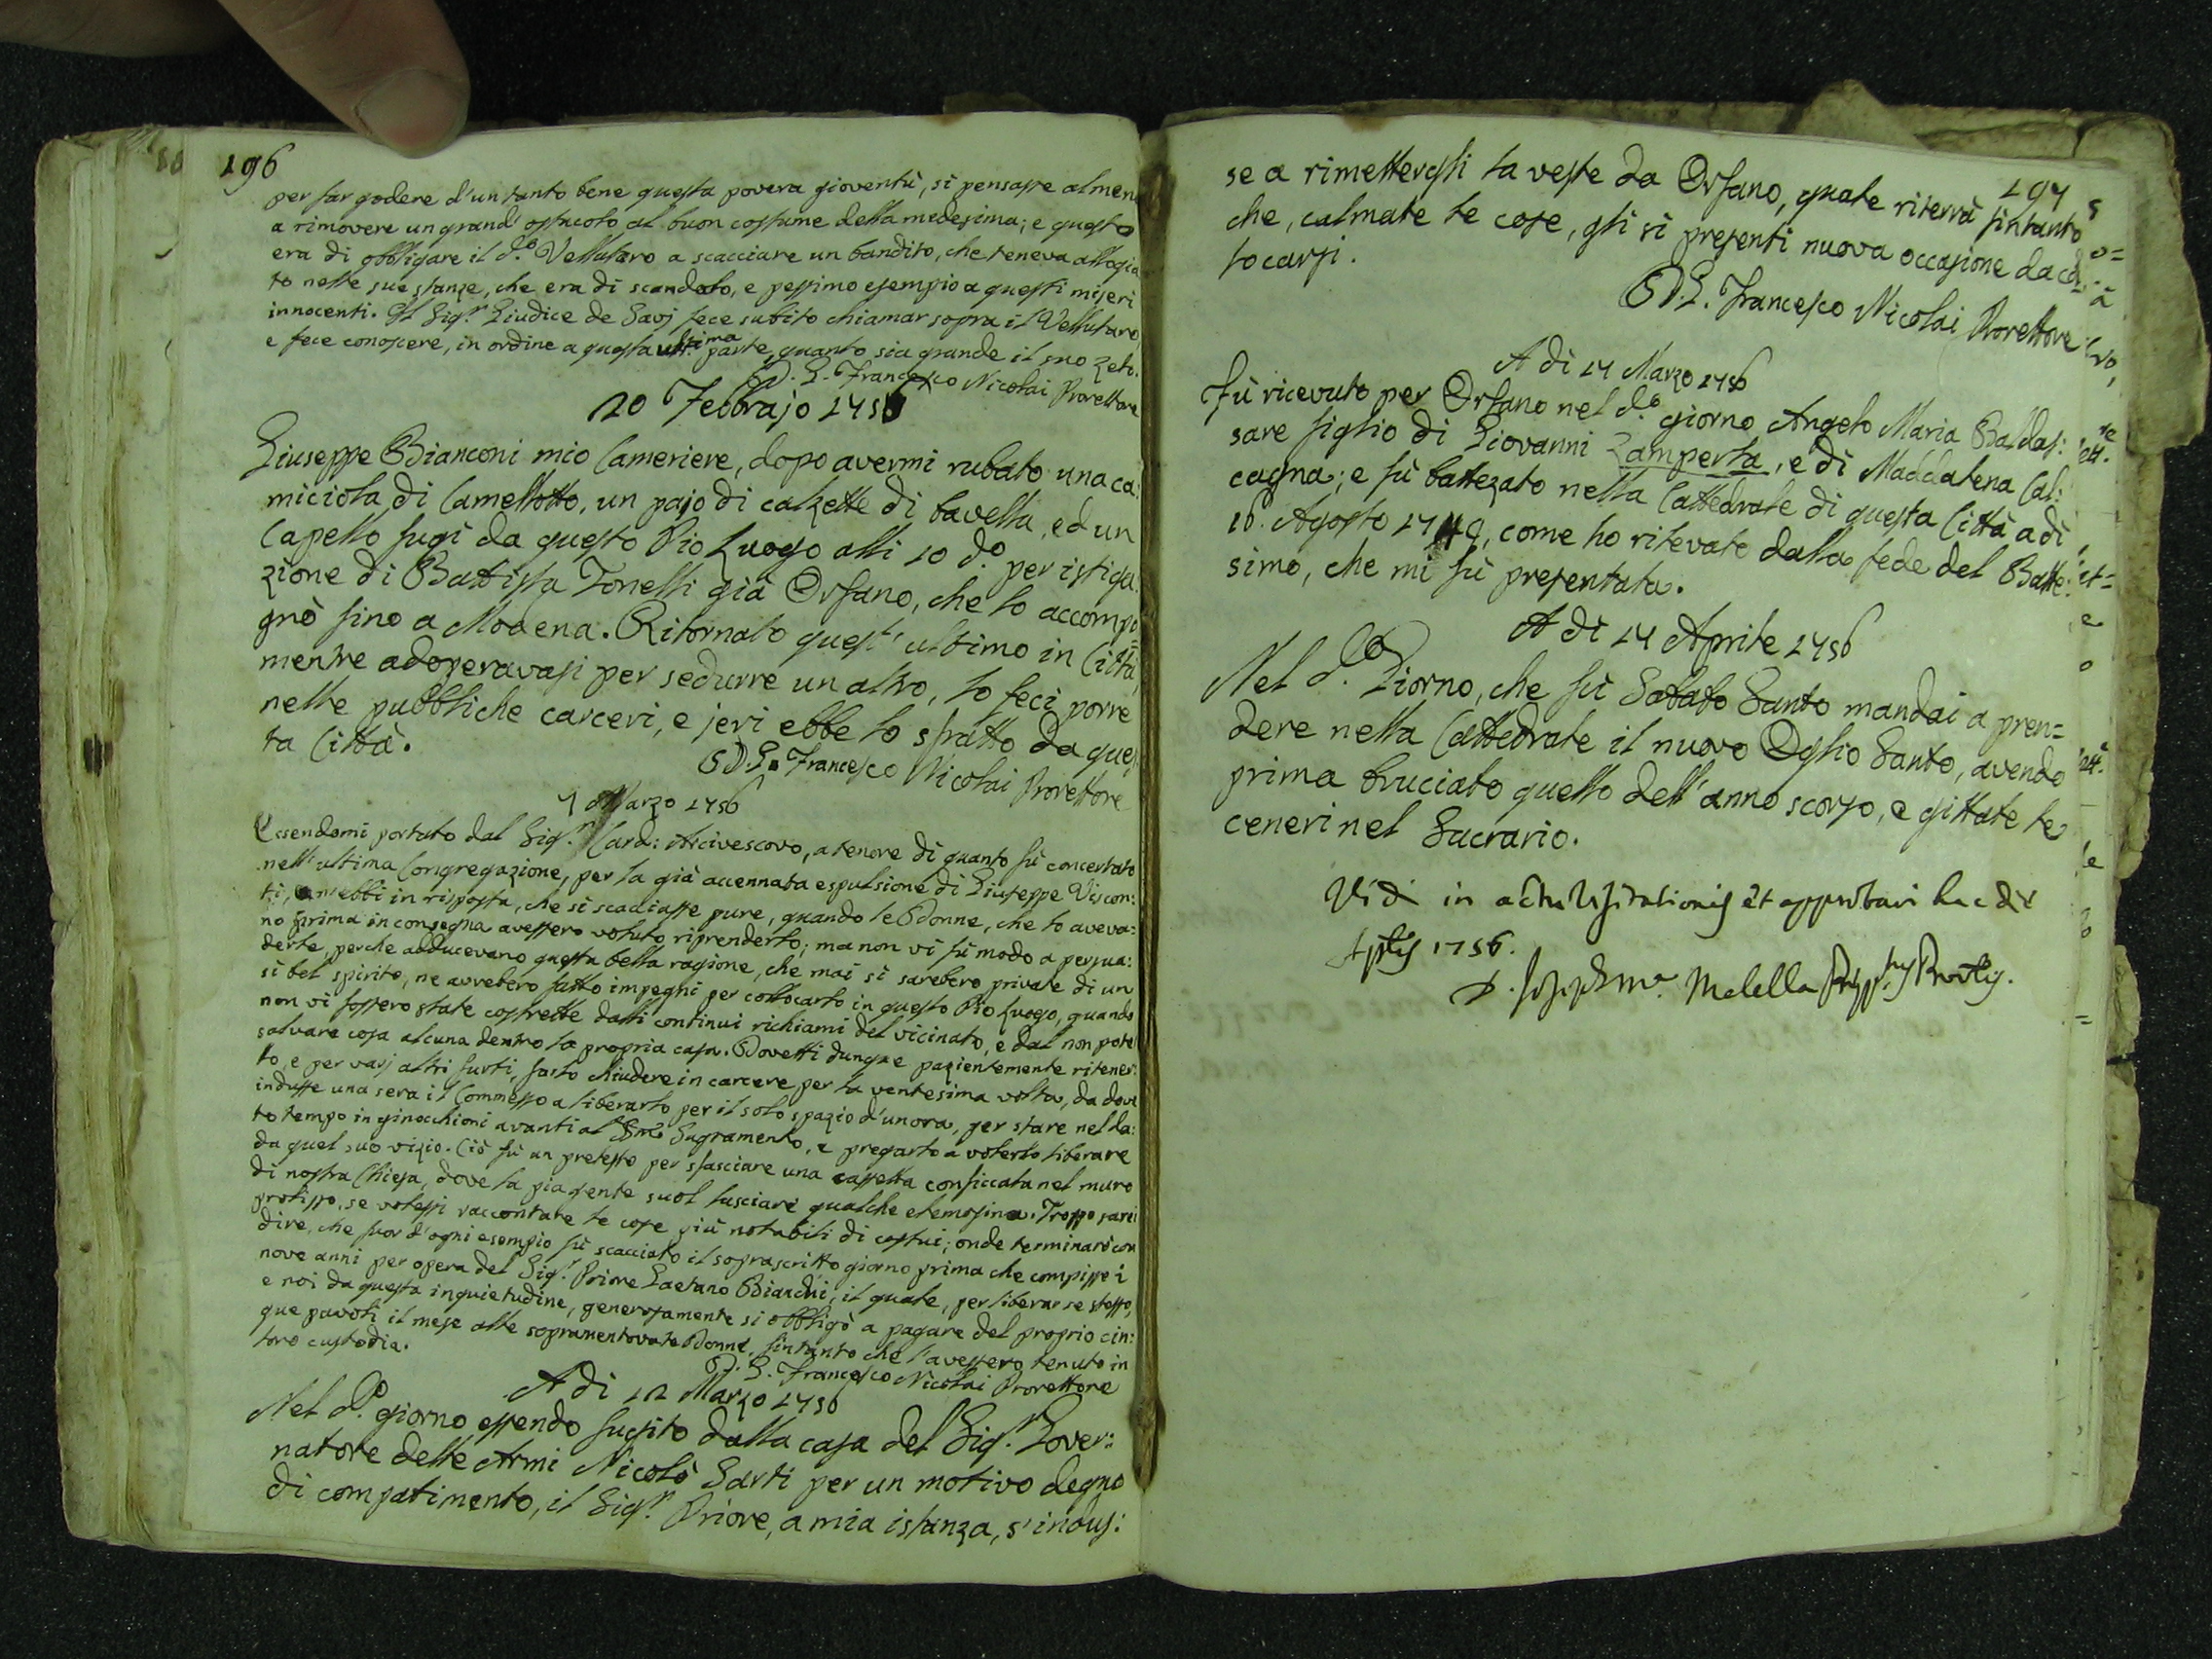 196
per far godere d'un tanto bene questa povera gioventù, si pensasse almen
a rimovere un grand' ostacolo al buon costume della medesima; e questo
era di obbligare il d.o Vellutaro a scacciare un bandito, che teneva allogia
to nelle sue stanze, che era di scandolo, e pessimo esempio a questi miseri
innocenti. Il Sig.r Giudice de Savj fece subito chiamar sopra il Vellutaro
e fece conoscere, in ordine a questa ultima parte, quanto sia grande il suo zelo.
D. G. Francesco Nicolai Prorettore
20 Febbrajo 1756
Giuseppe Bianconi mio Cameriere, dopo avermi rubato una ca:
miciola di Camellotto, un pajo di calzette di bavella, ed un
Capello fugì da questo Pio Luogo alli 10 d.o per istiga:
zione di Battista Tonelli già Orfano, che lo accompa
gnò fino a Modena. Ritornato quest' ultimo in Città,
mentre adoperavasi per sedurre un altro, lo feci porre
nelle pubbliche carceri, e jeri ebbe lo sfratto da ques
ta Città.
D. G. Francesco Nicolai Prorettore
9 Marzo 1756
Essendomi portato dal Sig.r Card: Arcivescovo, a tenore di quanto fù concertato
nell' ultima Congregazione, per la già accennata espulsione di Giuseppe Viscon:
ti, n'ebbi in risposta, che si scacciasse pure, quando le Donne, che lo aveva:
no prima in consegna avessero voluto riprenderlo; ma non vi fù modo a persua:
derle, perche adducevano questa bella ragione, che mai si sarebero private di un
sì bel spirito, ne avrebero fatto impegni per collocarlo in questo Pio Luogo, quando
non vi fossero state costrette dalli continui richiami del vicinato, e dal non pote
salvare cosa alcuna dentro la propria casa. Dovetti dunque pazientemente ritener:
lo, e per varj altri furti, farlo chiudere in carcere per la ventesima volta, da dove
indusse una sera il Commesso a liberarlo per il solo spazio d'un ora, per stare nel da:
to tempo in ginocchioni avanti al SSmo Sagramento, e pregarlo a volerlo liberare
da quel suo vizio. Ciò fù un pretesto per sfasciare una cassetta conficcata nel muro
di nostra Chiesa, dove la pia gente suol lasciare qualche elemosina. Troppo sarei
prolisso, se volessi raccontare le cose più notabili di costui; onde terminarò con
dire, che fuor d'ogni esempio fù scacciato il soprascritto giorno prima che compisse i
nove anni per opera del Sig.r Priore Gaetano Bianchi, il quale, per liberar se stesso,
e noi da questa inquietudine, generosamente si obbligò a pagare del proprio cin:
que pavoli il mese alle sopramentovate Donne, fintanto che l'avessero tenuto in
loro custodia.
D. G. Francesco Nicolai Prorettore
A dì 12 Marzo 1756
Nel d.o giorno essendo fugito dalla casa del Sig.r Gover:
natore delle Armi Nicolò Sarti per un motivo degno
di compatimento, il Sig.r Priore, a mia istanza, s'indus:
197
se a rimettergli la veste da Orfano, quale riterrà fintanto
che, calmate le cose, gli si presenti nuova occasione da col
locarsi.
D. G. Francesco Nicolai Prorettore
A dì 17 Marzo 1756
Fù ricevuto per Orfano nel d.o giorno Angelo Maria Baldas:
sare figlio di Giovanni Zamperla, e di Maddalena Cal:
cagna; e fù battezato nella Cattedrale di questa Città a dì
16. Agosto 1749, come ho rilevato dalla fede del Batte:
simo, che mi fù presentata.
A dì 17 Aprile 1756
Nel d.o Giorno, che fù Sabato Santo mandai a pren=
dere nella Cattedrale il nuovo Oglio Santo, avendo
prima bruciato quello dell' anno scorso, e gittate le
ceneri nel Sacrario.
Vidi in actu Visitationis et approbavi hac die
Aplis 1756.
Melella